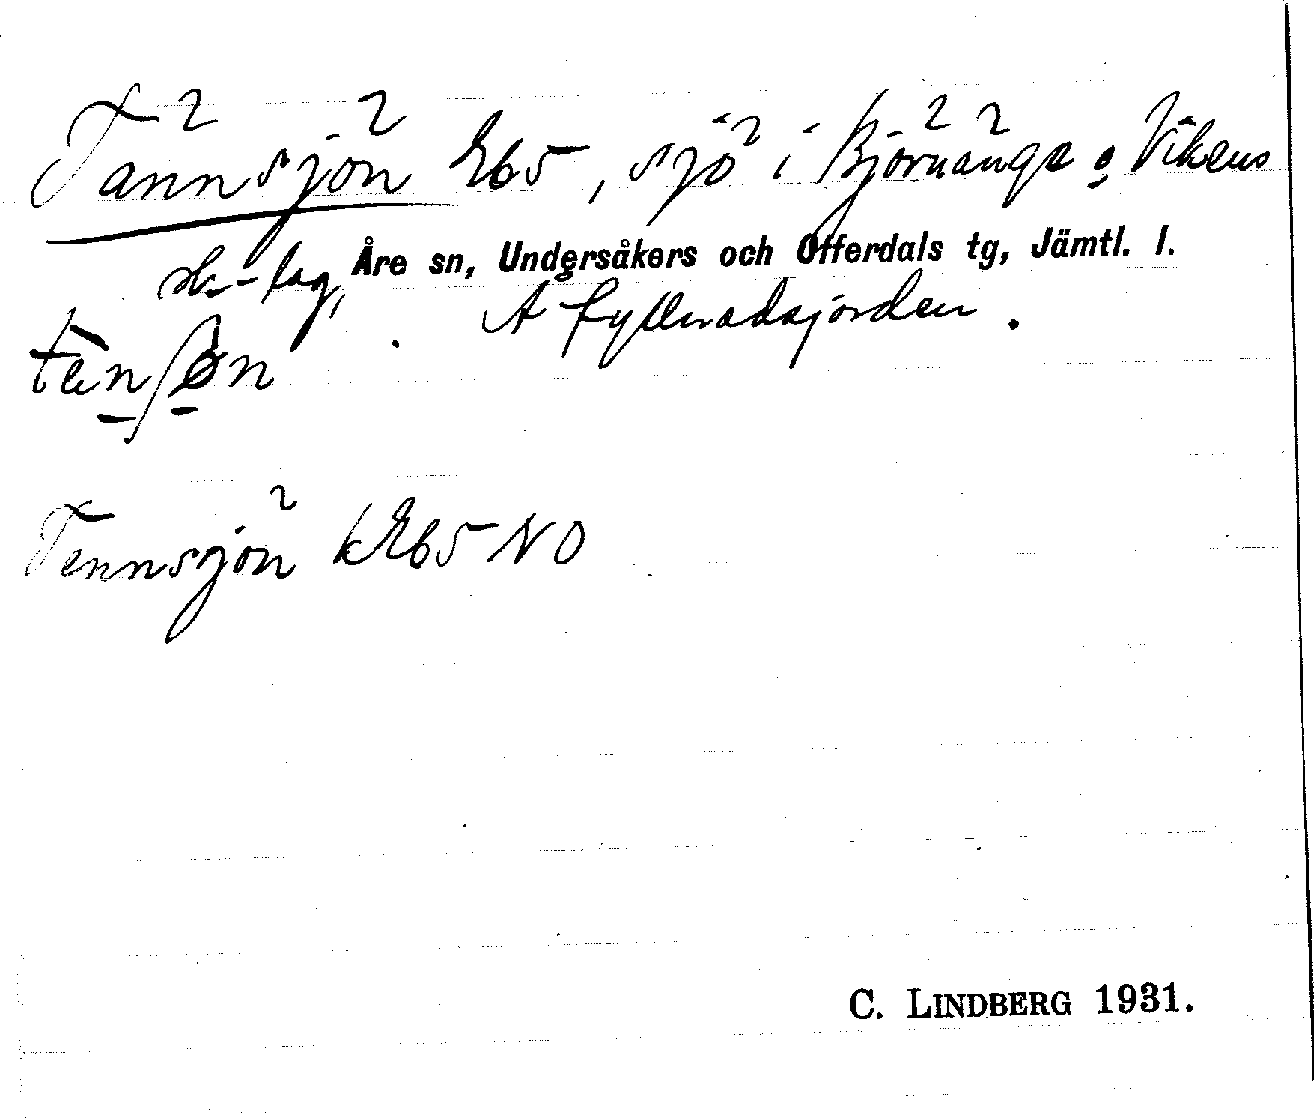 Tännsjön Eb5, sjö i Björnänge o Vikens
sk.-lag, Åre sn, Undersåkers och Offerdals tg, Jämtl. l.
A fyllnadsjorden.
Tennsjön kEb5 NO
C. LINDBERG 1931.